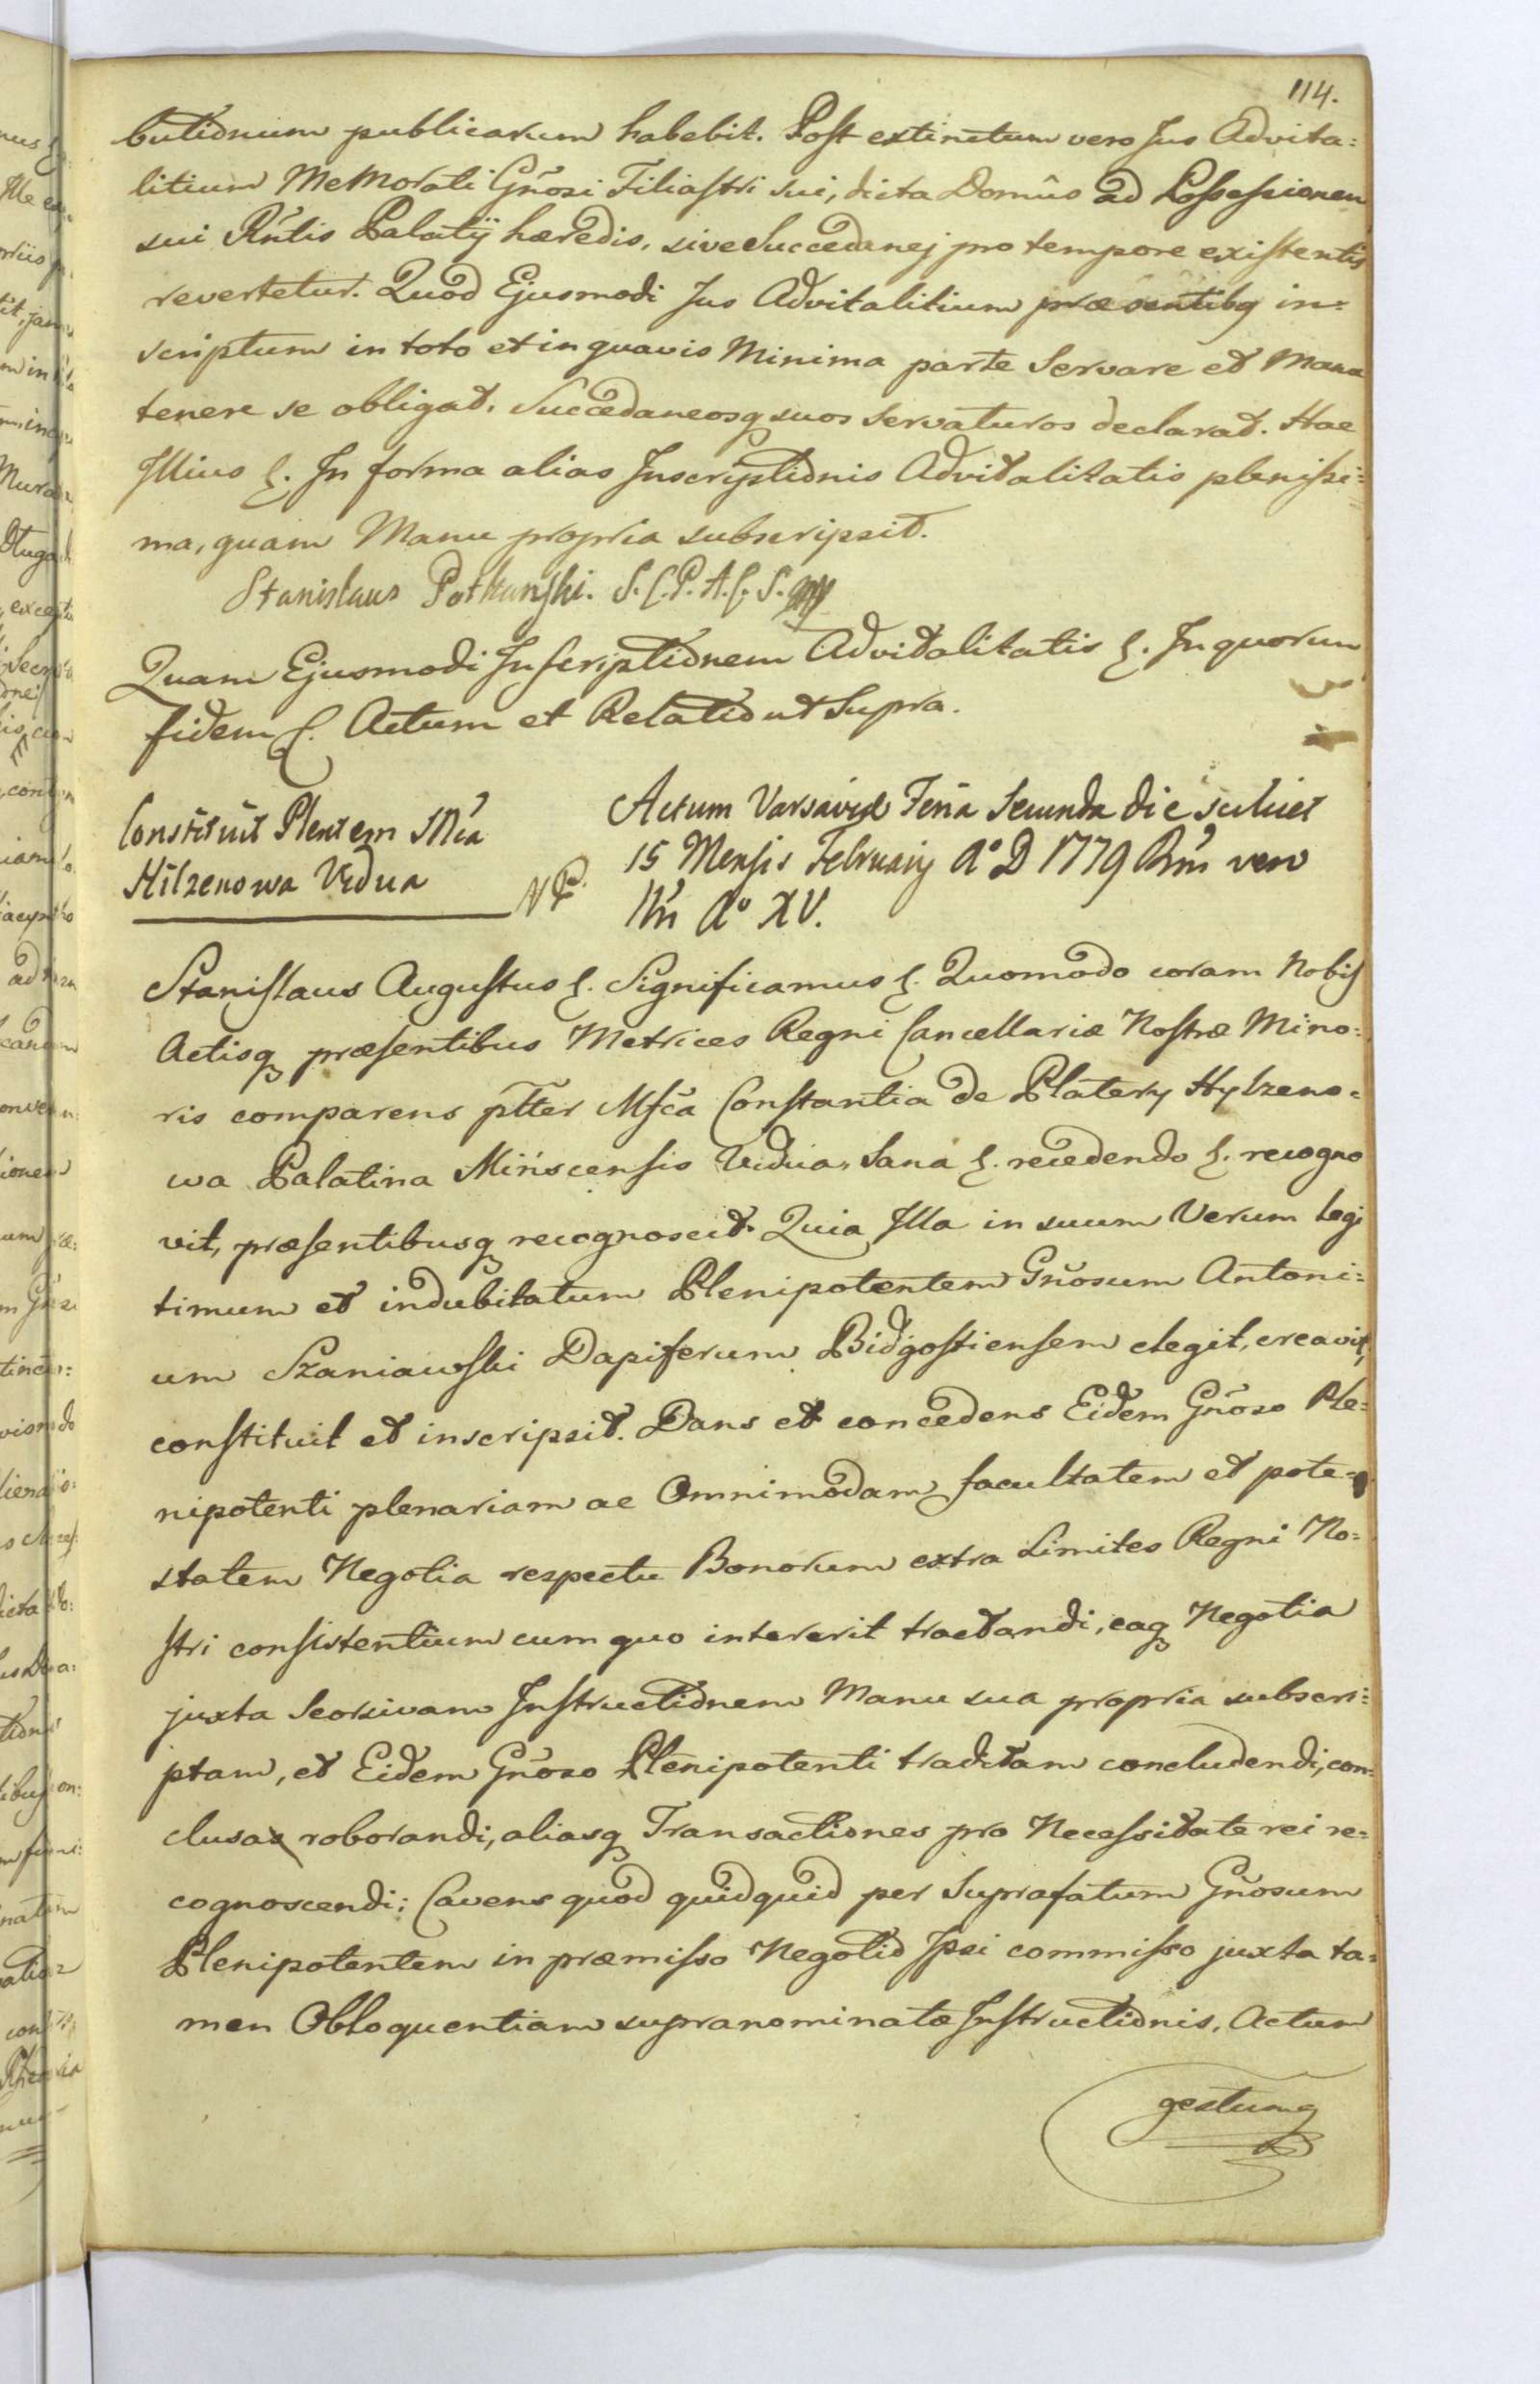 114.
butionum publicarum habebit. Post extinctum vero Jus Advita=
litium Memorati Gn̄osi Filiastri sui, dicta Domus ad Possessionem
sui Rn̄tis Palatij hæredis, sive Succedanej pro tempore existentis
revertetur. Quod Ejusmodi Jus Advitalitium præsentibq in=
scriptum in toto et in quavis Minima parte Servare et Manu
tenere se obligat. Succedaneosq suos servaturos declarat. Hac
Illius &. In forma alias Inscriptionis Advitalitatis plenissi=
ma, quam Manu propria subscripsit.
Stanislaus Potkanski. S. C. P. A. C. S. mp
Quam Ejusmodi Inscriptionem Advitalitatis &. In quorum
fidem &. Actum et Relatio ut Supra.
Constituit Plentem Mca
Hilzenowa Vidua
Actum Varsaviæ Feria Secunda die scilicet
15 Mensis February A° D 1779 Rni vero
Nri A° XV.
Stanislaus Augustus &. Significamus &. Quomodo coram Nobis
Actisq præsentibus Metrices Regni Cancellariæ Nostræ Mino=
ris comparens plter Mfca Constantia de Platery Hylzeno=
wa Palatina Mińscensis Vidua, Sana &. recedendo &. recogno
vit, præsentibusq recognoscit. Quia Illa in suum Verum legi
timum et indubitatum Plenipotentem Gn̄osum Antoni=
um Szaniawski Dapiferum Bidgostiensem elegit, creavit,
constituit et inscripsit. Dans et concedens Eidem Gn̄oso Ple=
nipotenti plenariam ac Omnimodam facultatem et pote=
statem Negotia respectu Bonorum extra Limites Regni No=
stri consistentium cum quo intererit tractandi, eaq Negotia
juxta Seorsivam Instructionem Manu sua propria subscri=
ptam, et Eidem Gn̄oso Plenipotenti traditam concludendi, con=
clusa roborandi, aliasq Transactiones pro Necessitate rei re=
cognoscendi; Cavens quod quidquid per Suprafatum Gn̄osum
Plenipotentem in præmisso Negotio Ipsi commisso juxta ta=
men Obloquentiam supranominatæ Instructionis, Actum
gestumq